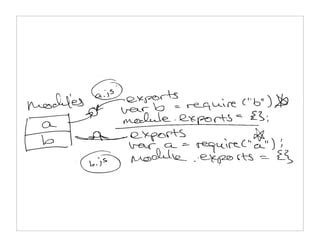 modules
a
b
a.js
exports
var b = require("b")
module.exports = {};
b.js
exports
var a = require("a");
module.exports = {}